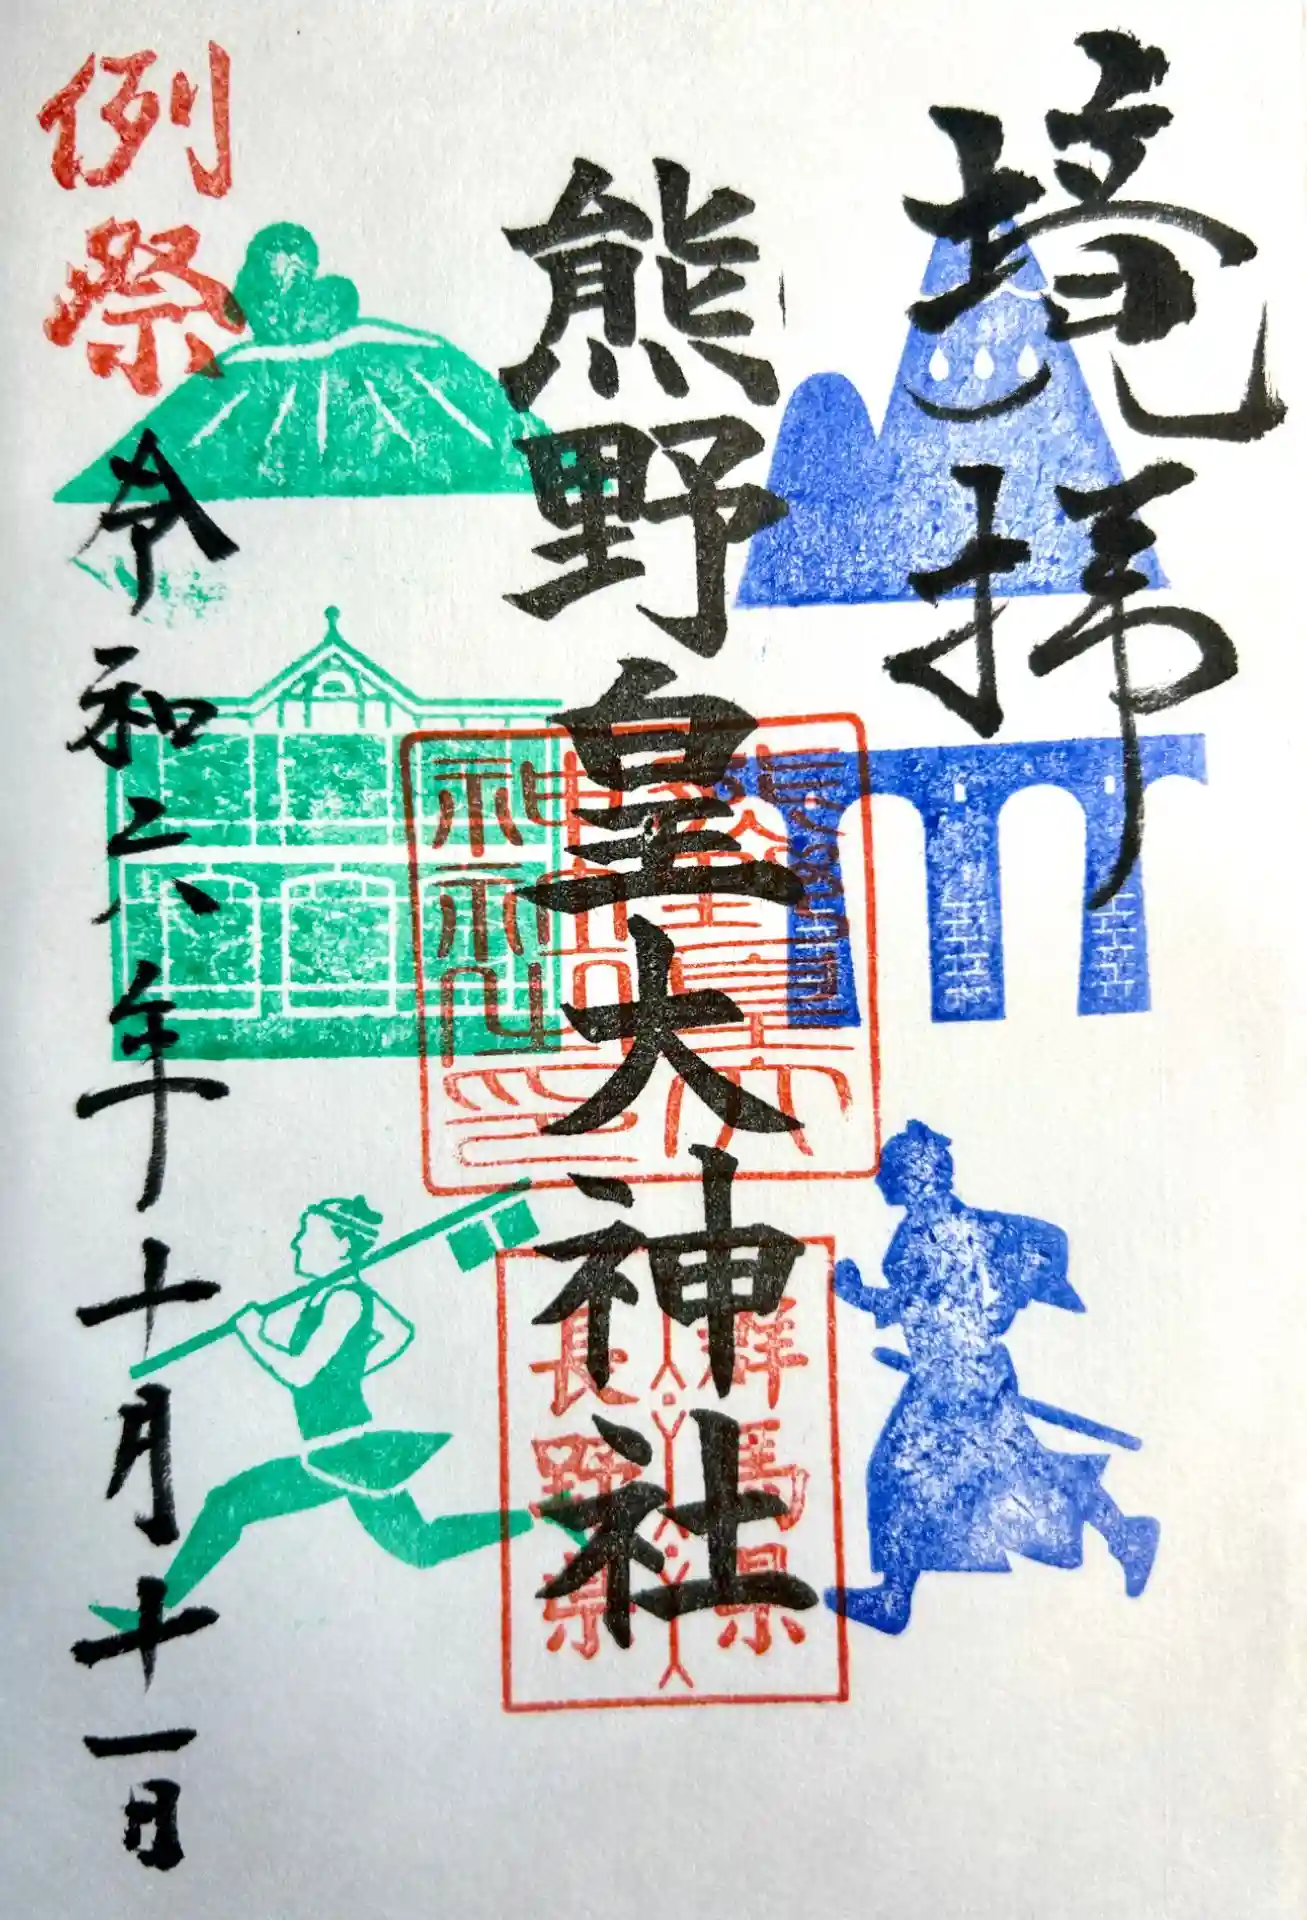 境拝
熊野皇大神社
群馬県
長野県
例祭
令和六年十月十一日